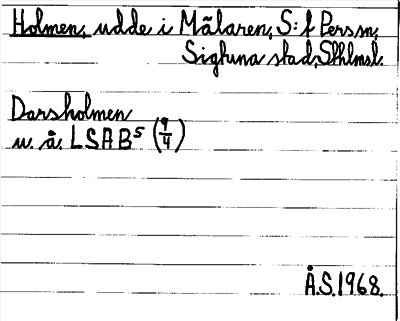 Holmen, udde i Mälaren, S:t Pers sn,
Sigtuna stad, Sthlms l.
Darsholmen
u. å. LSA B5 (9/4)
Å.S. 1968.